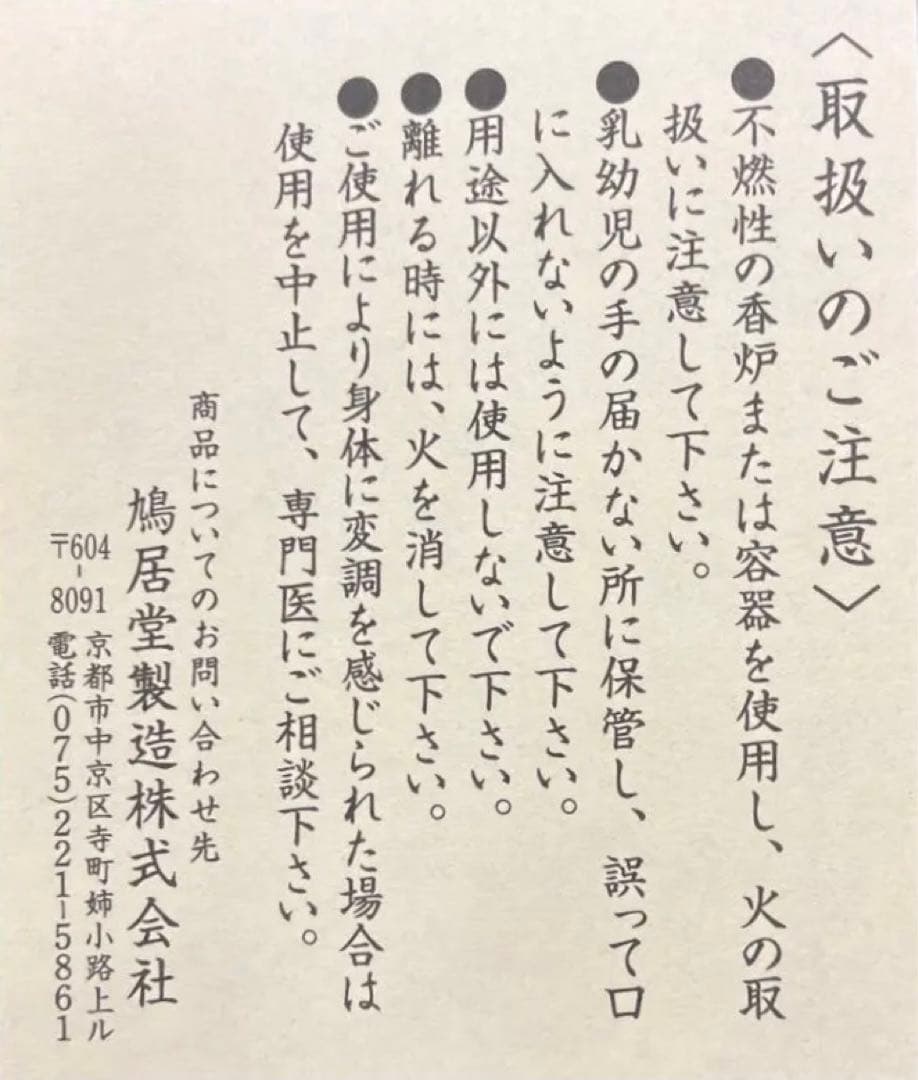 〈取扱いのご注意〉
●不燃性の香炉または容器を使用し、火の取
扱いに注意して下さい。
●乳幼児の手の届かない所に保管し、誤って口
に入れないように注意して下さい。
●用途以外には使用しないで下さい。
●離れる時には、火を消して下さい。
●ご使用により身体に変調を感じられた場合は
使用を中止して、専門医にご相談下さい。
商品についてのお問い合わせ先
鳩居堂製造株式会社
〒604-8091 京都市中京区寺町姉小路上ル
電話(075)221-5861